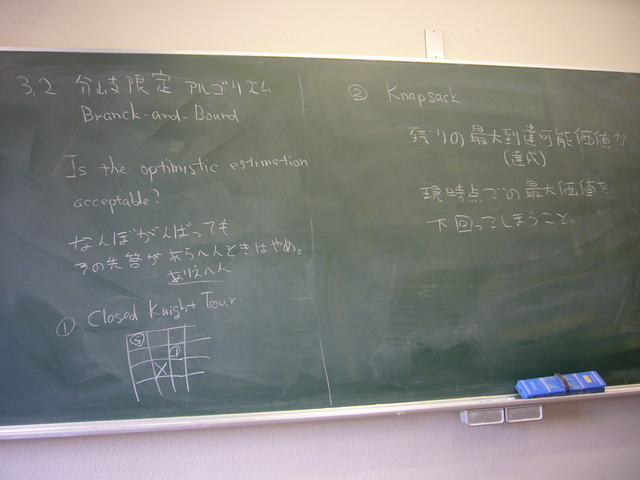 3.2 分岐限定アルゴリズム
Branch-and-Bound
Is the optimistic estimation
acceptable?
なんぼがんばっても
その先答があらへんときはやめ。
ありえへん
① Closed Knight Tour
S
1
X
② Knapsack
残りの最大到達可能価値が
(達成)
現時点での最大価値を
下回ってしまうこと。